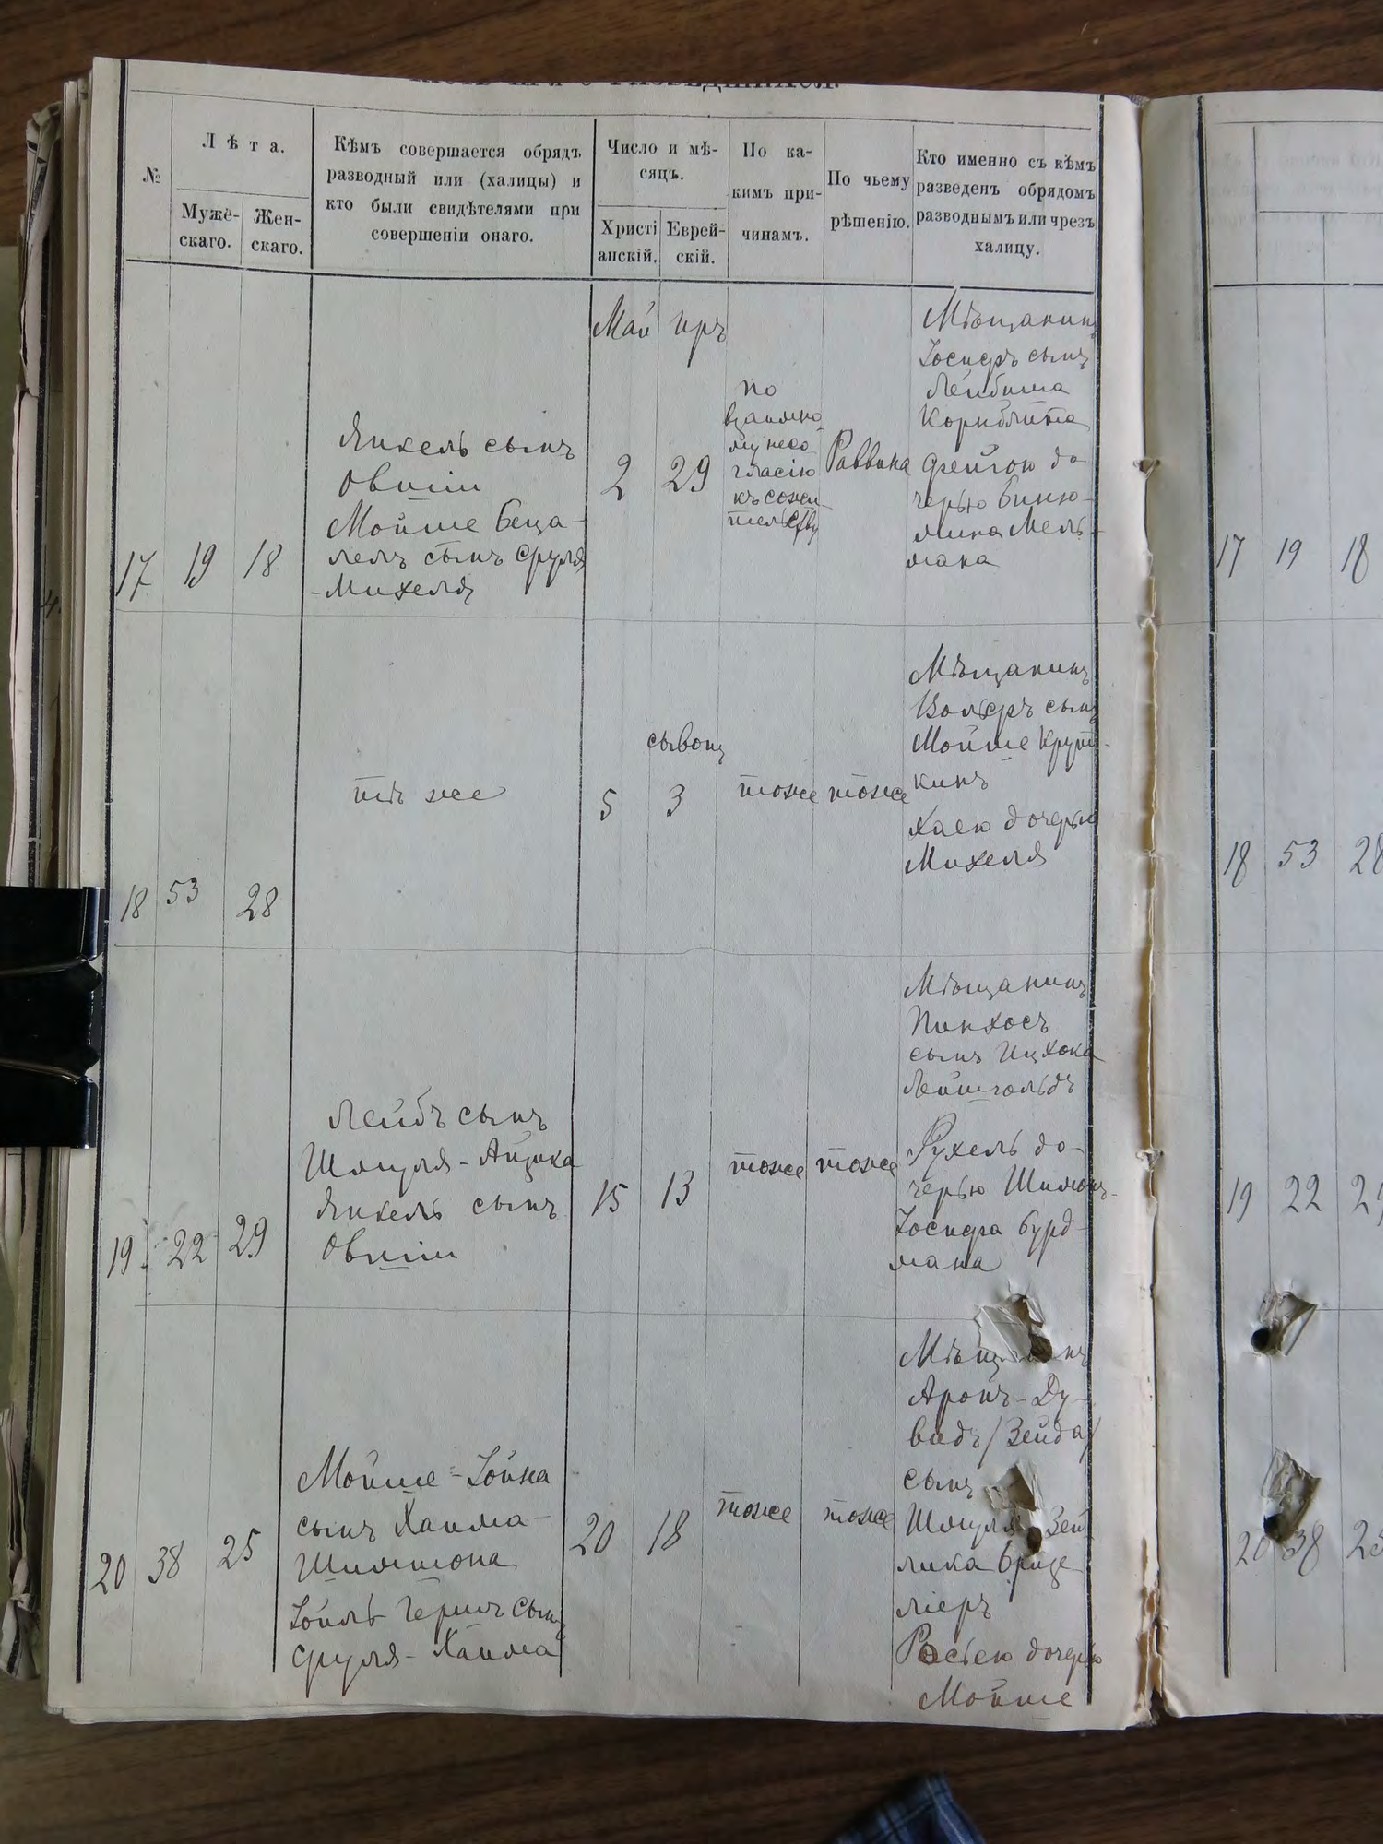 №
Лѣта.
Мужё-
скаго.
Жен-
скаго.
Кѣмъ совершается обрядъ
разводный или (халицы) и
кто были свидѣтелями при
совершеніи онаго.
Число и мѣ-
сяцъ.
Христі
анскій.
Еврей-
скій.
По ка-
кимъ при-
чинамъ.
По чьему
рѣшенію.
Кто именно съ кѣмъ
разведенъ обрядомъ
разводнымъ или чрезъ
халицу.
17 19 18
Янкель сынъ
Овшіи
Мойше Беца-
лелъ сынъ Сруля
Михеля
Май Иръ
2 29
по
взаимно
му несо
гласію
къ сожи
тельству
Раввина
Мѣщанинъ
Іосифъ сынъ
Лейбиша
Корнблита
Фейгою до
черью Биню-
мина Мель-
мана
18 53 28
тѣ же
5
сывонъ
3
тоже тоже
Мѣщанинъ
Волфъ сынъ
Мойше Крут-
кинъ
Хаею дочерью
Михеля
19 22 29
Лейбъ сынъ
Шмуля-Айзика
Янкель сынъ
Овшіи
15 13
тоже тоже
Мѣщанинъ
Пинхосъ
сынъ Ицхока
Лейнгольдъ
Рухель до-
черью Шимонъ-
Іосифа Бурд-
мана
20 38 25
Мойше-Іойна
сынъ Хаима-
Шимшона
Іойль Гершъ сынъ
Сруля-Хаима
20 18
тоже тоже
Аронъ-Ду-
видъ (Зейда)
сынъ
Шмуля Зей
лика Брице
ліеръ
Расею дочерью
Мойше
17 19 18
18 53 28
19 22
20 38